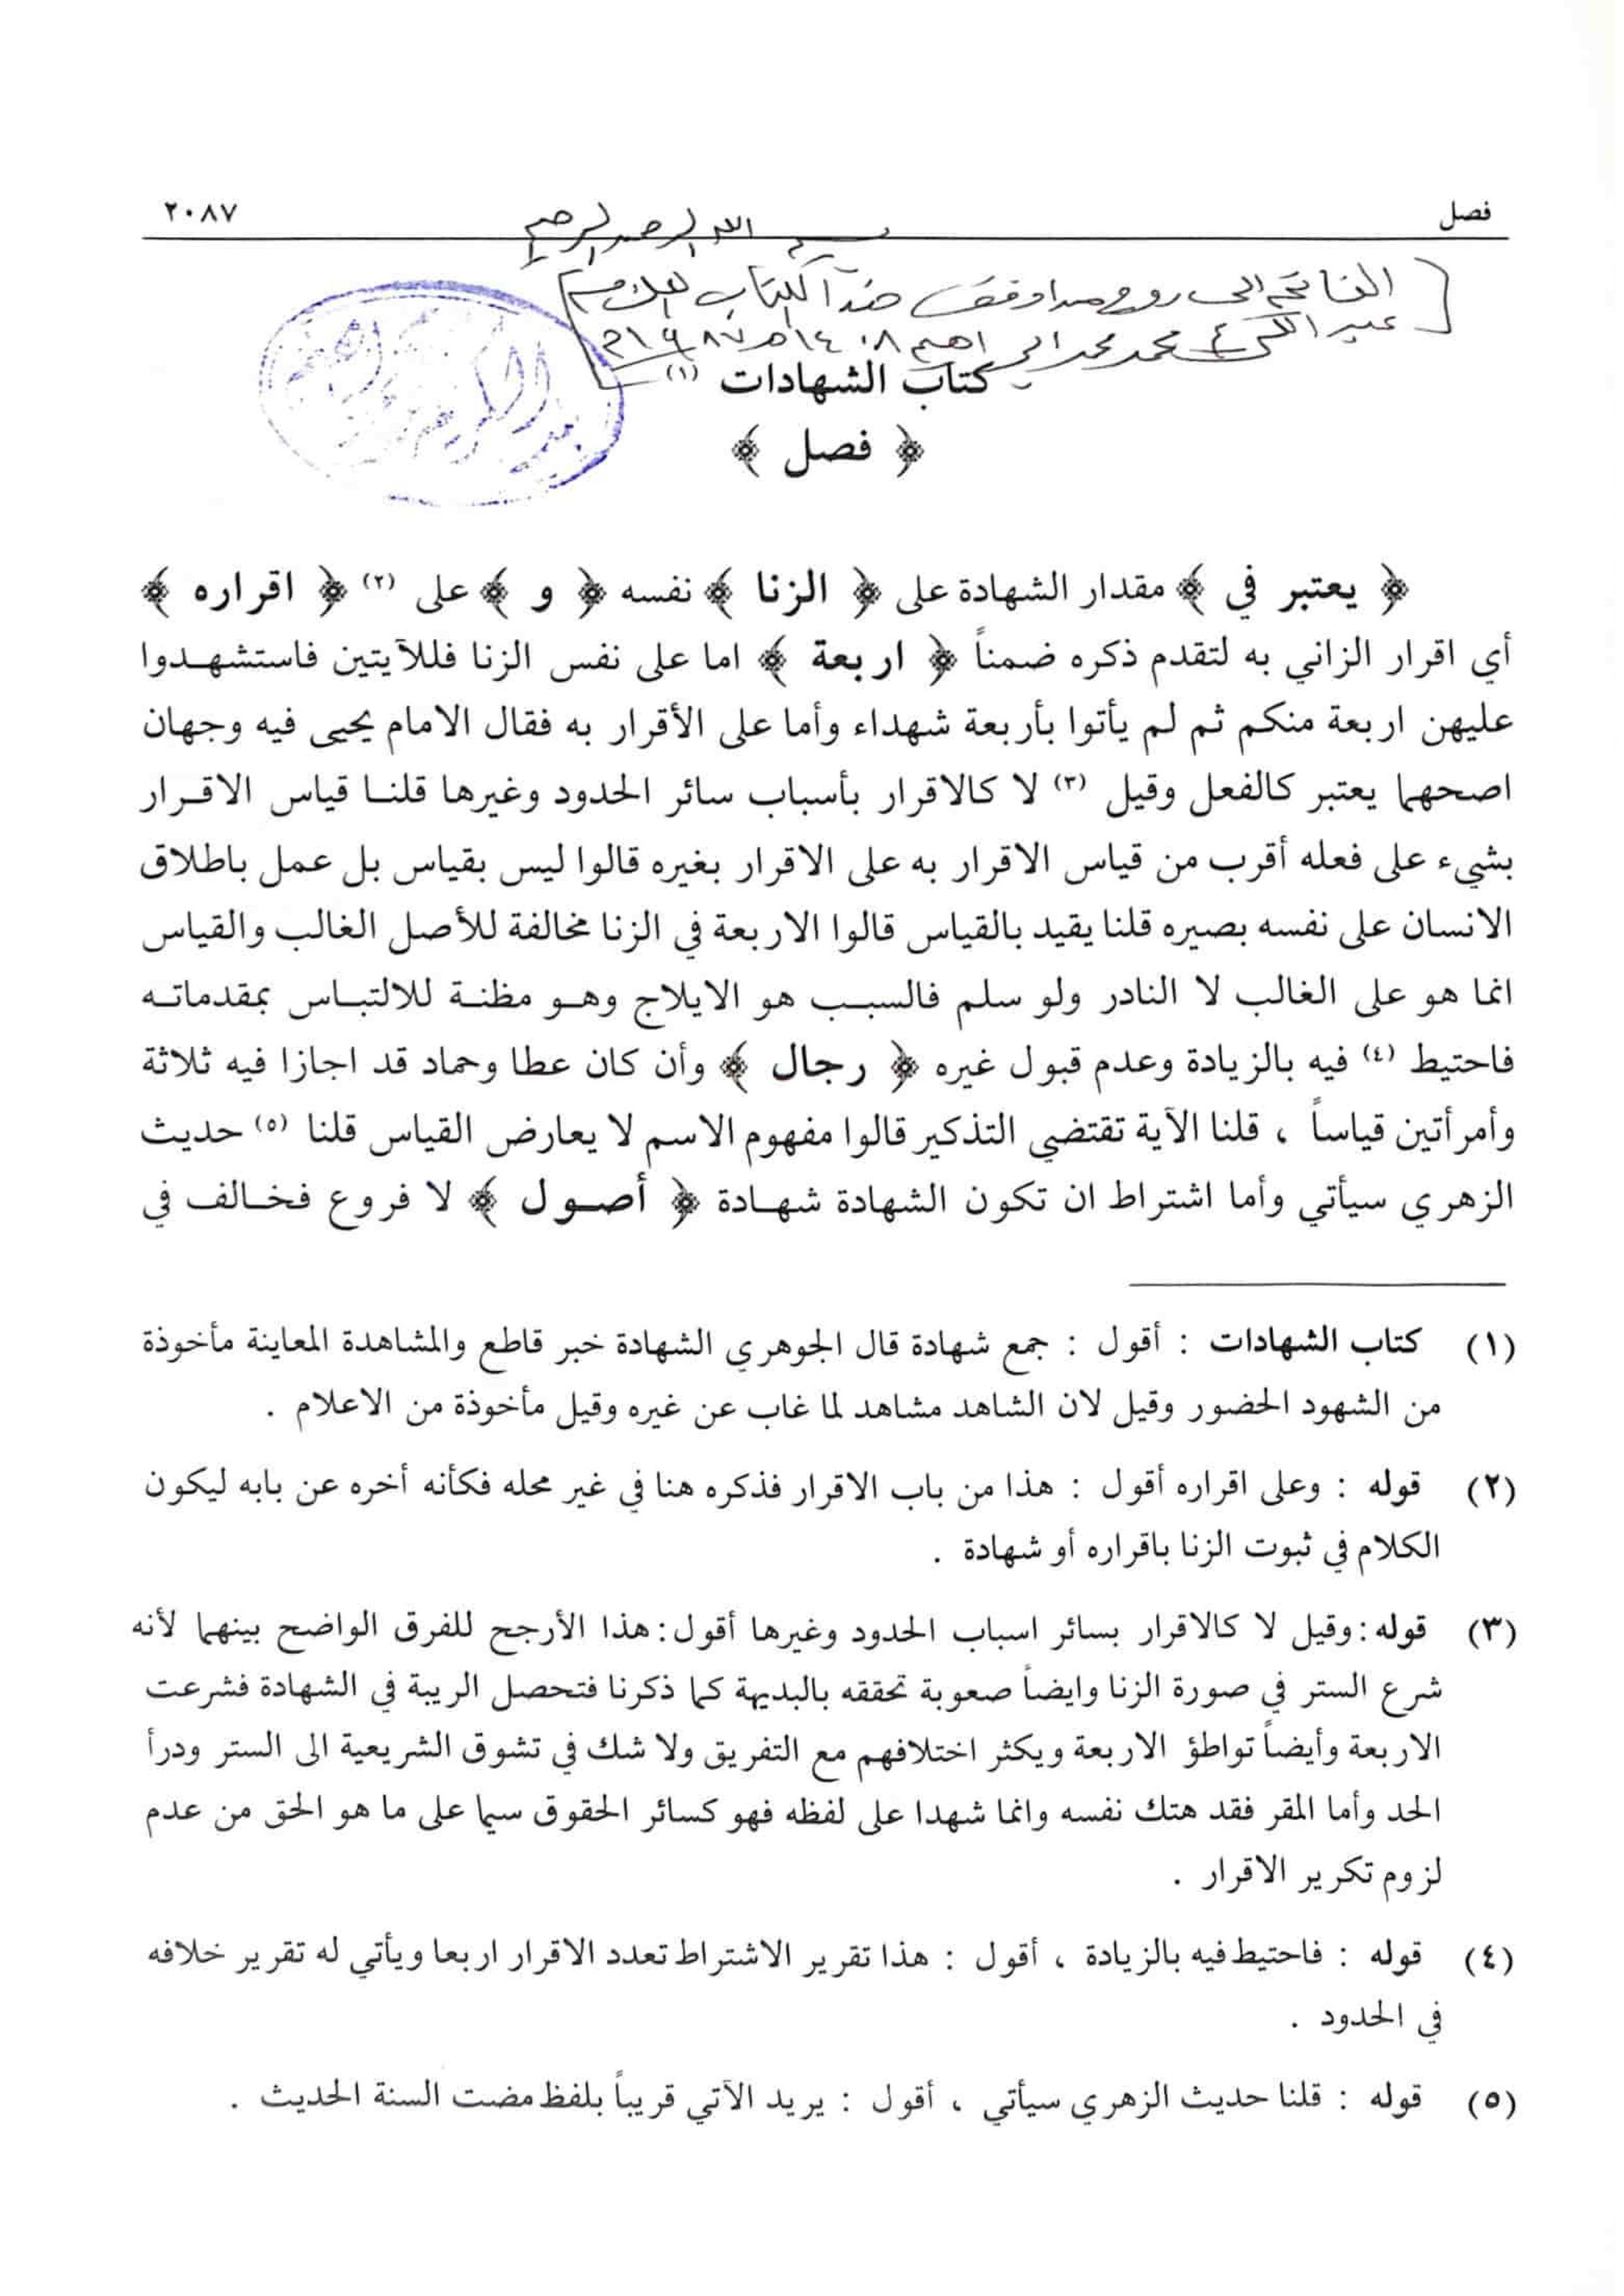 فصل
٢٠٨٧
بسم الله الرحمن الرحيم
الفاتحة الى روح من اوقف هذا الكتاب
عبد الكريم محمد محمد ابراهيم ١٤٠٨هـ ١٩٨٧م
كتاب الشهادات (١)
﴿ فصل ﴾
﴿ يعتبر في ﴾ مقدار الشهادة على ﴿ الزنا ﴾ نفسه ﴿ و ﴾ على (٢) ﴿ اقراره ﴾
أي اقرار الزاني به لتقدم ذكره ضمناً ﴿ اربعة ﴾ اما على نفس الزنا فللآيتين فاستشهدوا
عليهن اربعة منكم ثم لم يأتوا بأربعة شهداء وأما على الأقرار به فقال الامام يحيى فيه وجهان
اصحهما يعتبر كالفعل وقيل (٣) لا كالاقرار بأسباب سائر الحدود وغيرها قلنا قياس الاقرار
بشيء على فعله أقرب من قياس الاقرار به على الاقرار بغيره قالوا ليس بقياس بل عمل باطلاق
الانسان على نفسه بصيره قلنا يقيد بالقياس قالوا الاربعة في الزنا مخالفة للأصل الغالب والقياس
انما هو على الغالب لا النادر ولو سلم فالسبب هو الايلاج وهو مظنة للالتباس بمقدماته
فاحتيط (٤) فيه بالزيادة وعدم قبول غيره ﴿ رجال ﴾ وأن كان عطا وحماد قد اجازا فيه ثلاثة
وأمرأتين قياساً ، قلنا الآية تقتضي التذكير قالوا مفهوم الاسم لا يعارض القياس قلنا (٥) حديث
الزهري سيأتي وأما اشتراط ان تكون الشهادة شهادة ﴿ أصول ﴾ لا فروع فخالف في
(١) كتاب الشهادات : أقول : جمع شهادة قال الجوهري الشهادة خبر قاطع والمشاهدة المعاينة مأخوذة
من الشهود الحضور وقيل لان الشاهد مشاهد لما غاب عن غيره وقيل مأخوذة من الاعلام .
(٢) قوله : وعلى اقراره أقول : هذا من باب الاقرار فذكره هنا في غير محله فكأنه أخره عن بابه ليكون
الكلام في ثبوت الزنا باقراره أو شهادة .
(٣) قوله : وقيل لا كالاقرار بسائر اسباب الحدود وغيرها أقول : هذا الأرجح للفرق الواضح بينهما لأنه
شرع الستر في صورة الزنا وايضاً صعوبة تحققه بالبديهة كما ذكرنا فتحصل الريبة في الشهادة فشرعت
الاربعة وأيضاً تواطؤ الاربعة ويكثر اختلافهم مع التفريق ولا شك في تشوق الشريعية الى الستر ودرأ
الحد وأما المقر فقد هتك نفسه وانما شهدا على لفظه فهو كسائر الحقوق سيما على ما هو الحق من عدم
لزوم تكرير الاقرار .
(٤) قوله : فاحتيط فيه بالزيادة ، أقول : هذا تقرير الاشتراط تعدد الاقرار اربعا ويأتي له تقرير خلافه
في الحدود .
(٥) قوله : قلنا حديث الزهري سيأتي ، أقول : يريد الآتي قريباً بلفظ مضت السنة الحديث .